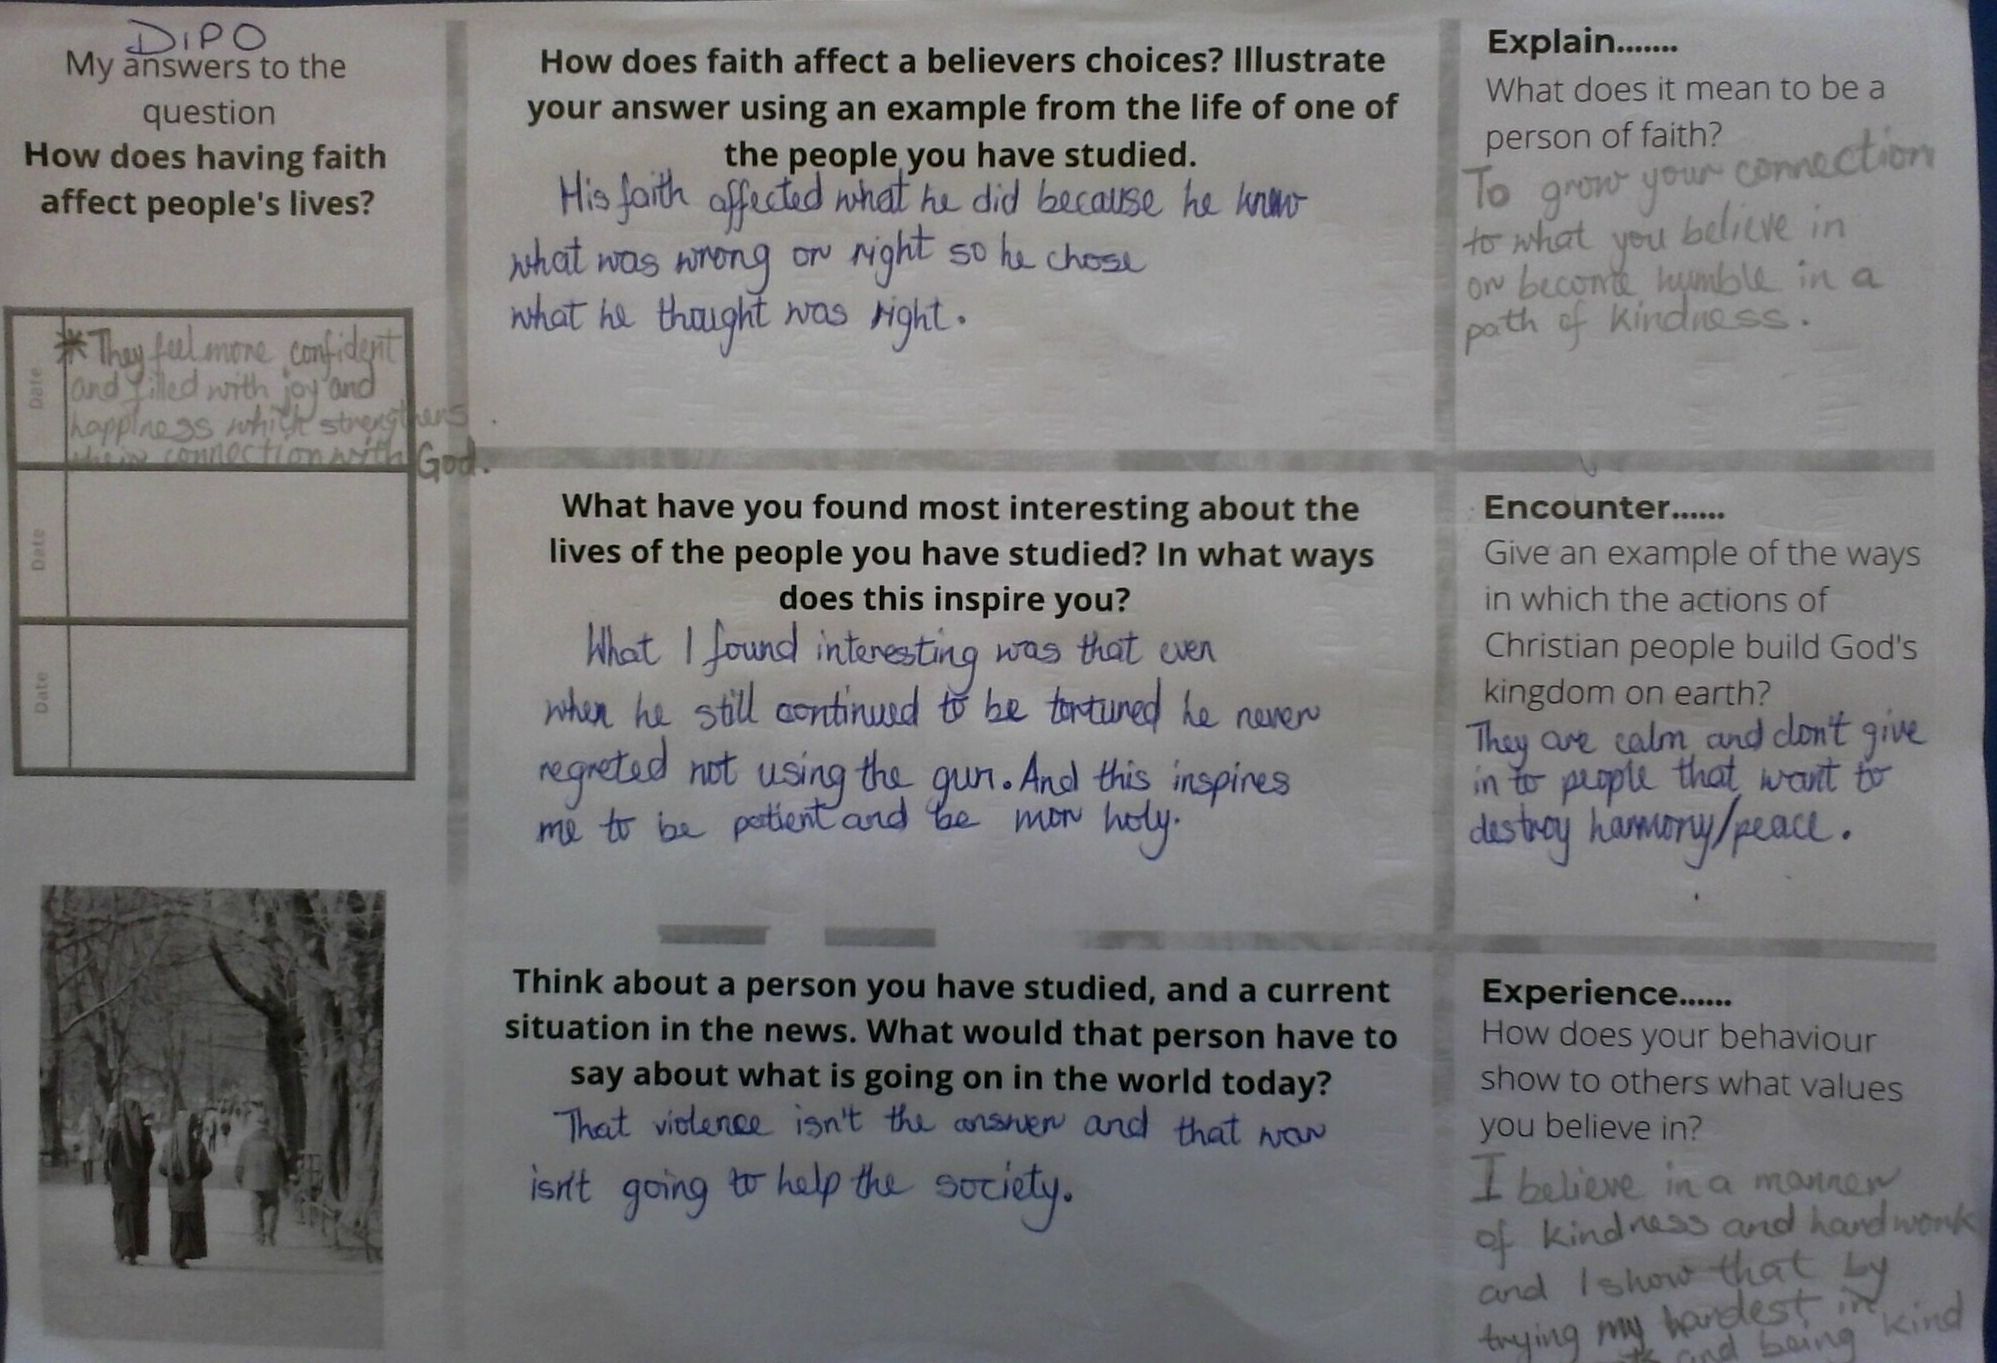 DIPO
My answers to the
question
How does having faith
affect people's lives?
Date
* They feel more confident
and filled with joy and
happiness which strengthens
their connection with God.
Date
Date
How does faith affect a believers choices? Illustrate
your answer using an example from the life of one of
the people you have studied.
His faith affected what he did because he knew
what was wrong or right so he chose
what he thought was right.
What have you found most interesting about the
lives of the people you have studied? In what ways
does this inspire you?
What I found interesting was that even
when he still continued to be tortured he never
regreted not using the gun. And this inspires
me to be patient and be mor holy.
Think about a person you have studied, and a current
situation in the news. What would that person have to
say about what is going on in the world today?
That violence isn't the answer and that war
isn't going to help the society.
Explain.......
What does it mean to be a
person of faith?
To grow your connection
to what you believe in
or become humble in a
path of kindness.
Encounter......
Give an example of the ways
in which the actions of
Christian people build God's
kingdom on earth?
They are calm and don't give
in to people that want to
destroy harmony/peace.
Experience......
How does your behaviour
show to others what values
you believe in?
I believe in a manner
of kindness and hardwork
and I show that by
trying my hardest in
and being kind